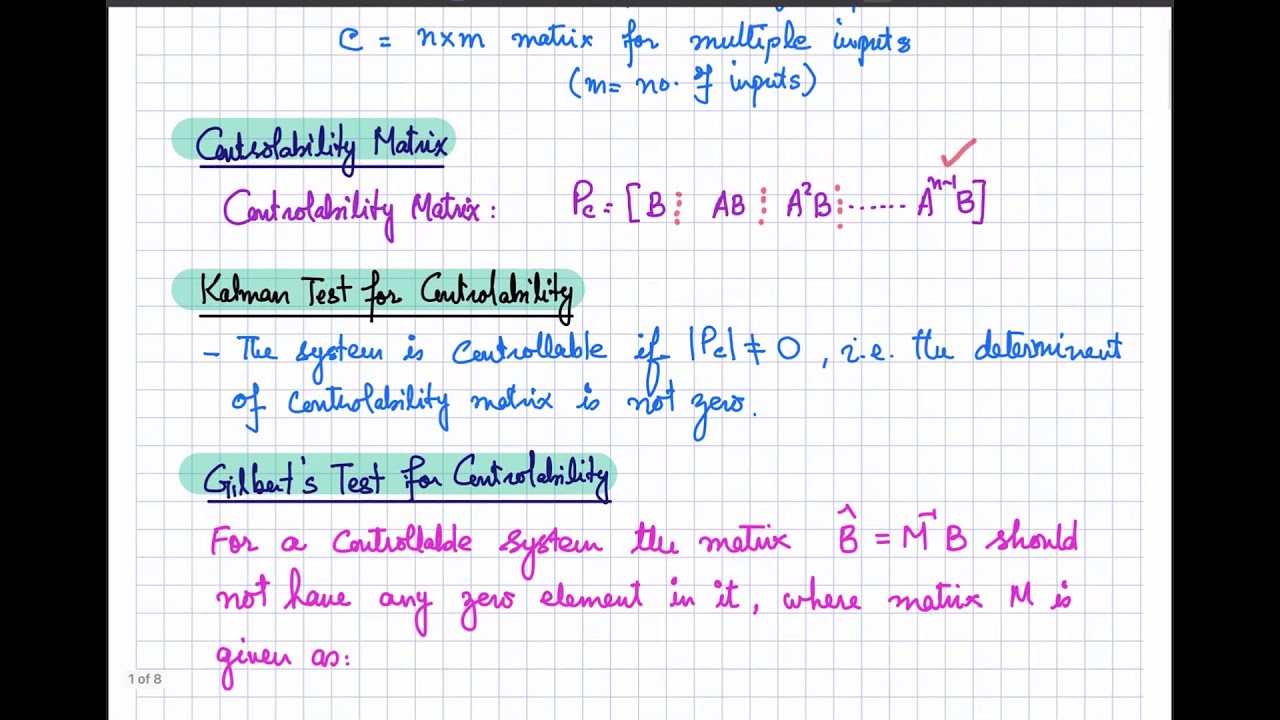 C = n×m matrix for multiple inputs
(m= no. of inputs)
Controlability Matrix
Controlability Matrix: Pc = [B ⋮ AB ⋮ A²B ⋮ ...... Aⁿ⁻¹B]
Kalman Test for Controlability
- The system is controllable if |Pc| ≠ 0, i.e. the determinent
of controlability matrix is not zero.
Gilbert's Test for Controlability
For a controllable system the matrix B̂ = M⁻¹B should
not have any zero element in it, where matrix M is
given as:
1 of 8